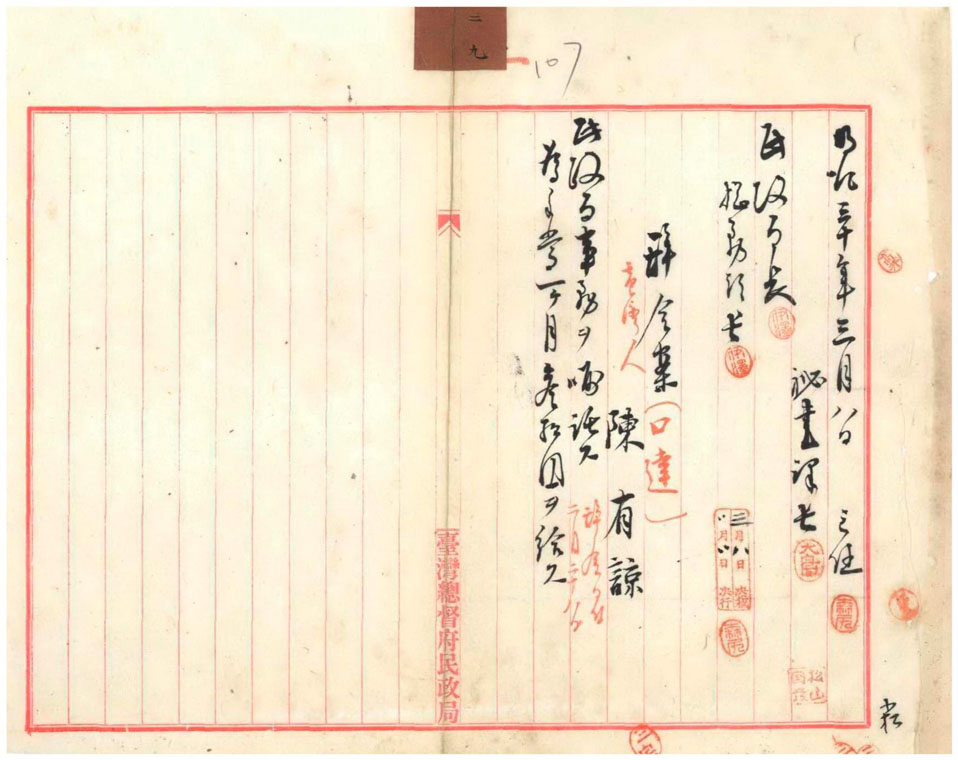 明治三十年三月八日 主任
秘書課長
民政局長
総務部長
三月八日 決判
三月八日 決行
辞令案(口達)
台湾人
陳有諒
民政局事務ヲ嘱託ス
為手当一ヶ月参拾円ヲ給ス
臺灣總督府民政局
二九
107